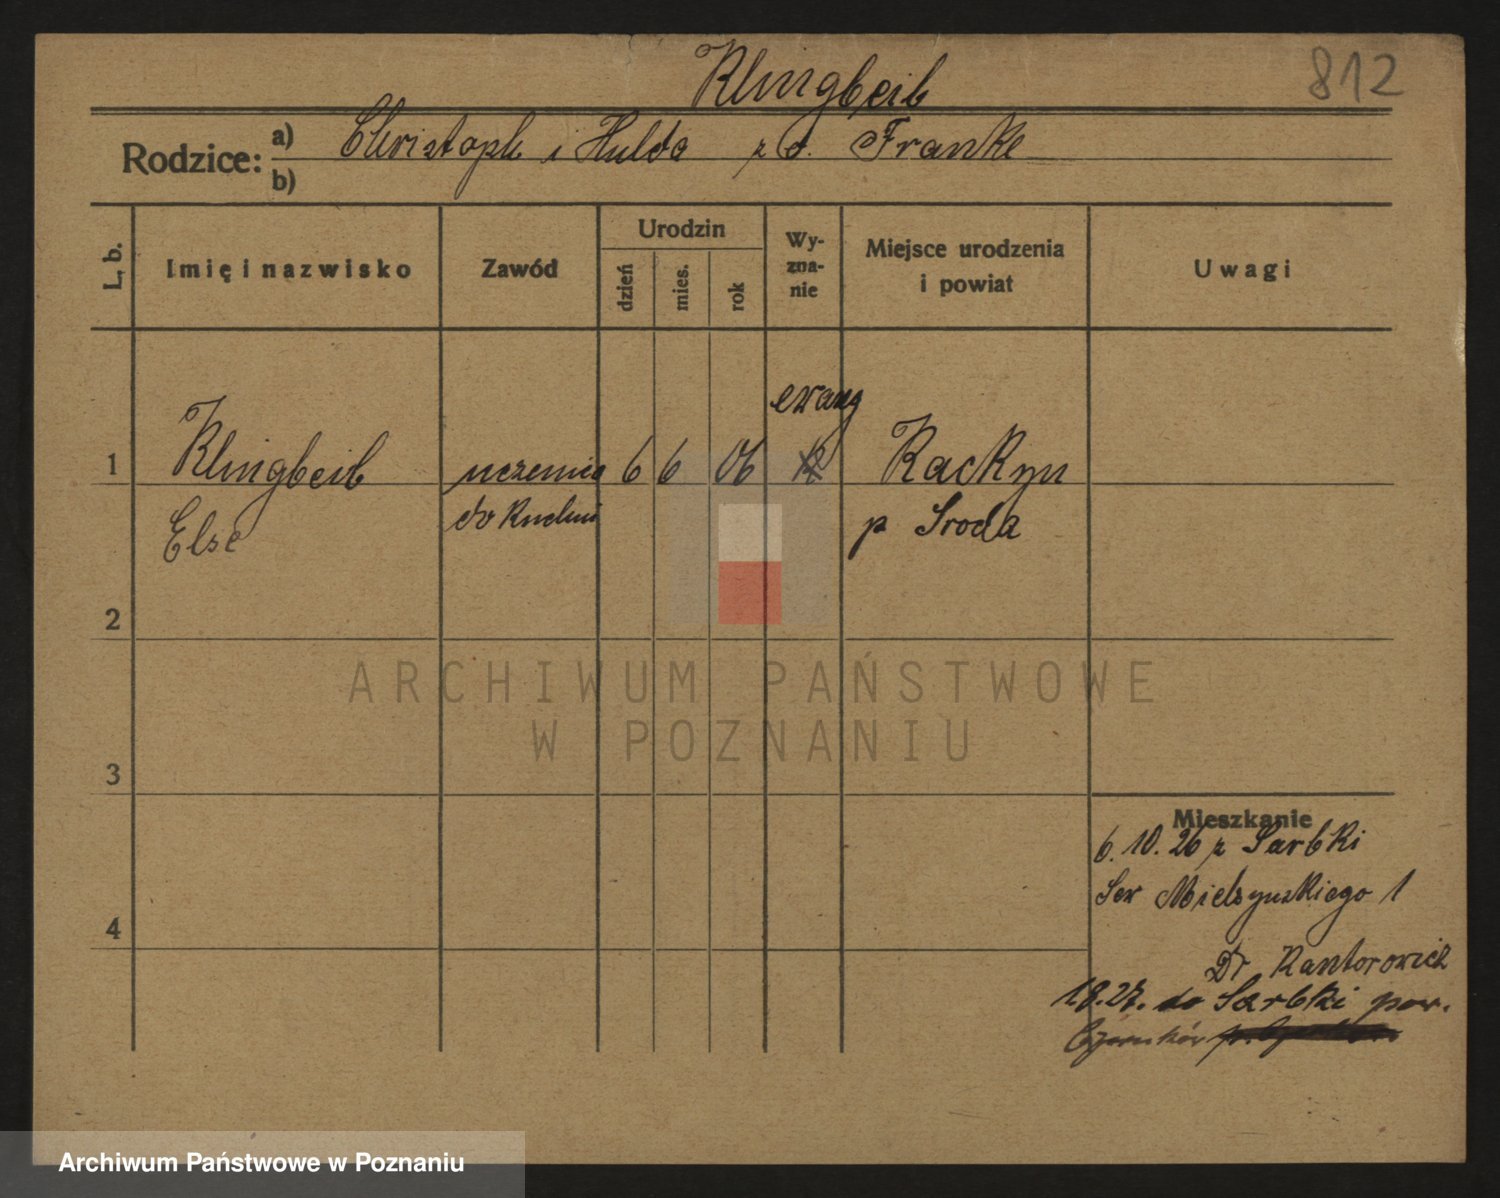 Klingbeil
812
Rodzice: a) Christoph i Hulda z d. Franke
b)
L. b.
Imię i nazwisko
Zawód
Urodzin
dzień
mies.
rok
Wy-
zna-
nie
Miejsce urodzenia
i powiat
Uwagi
ewang
1 Klingbeil uczenica 6 6 06 Rackyn
Else do kuchni p Sroda
2
3
4
Mieszkanie
6.10.26 z Sarbki
Sew Mielzynskiego 1
Dr Kantorowicz
1.8.27. do Sarbki pow.
Czarnków
ARCHIWUM PAŃSTWOWE
W POZNANIU
Archiwum Państwowe w Poznaniu